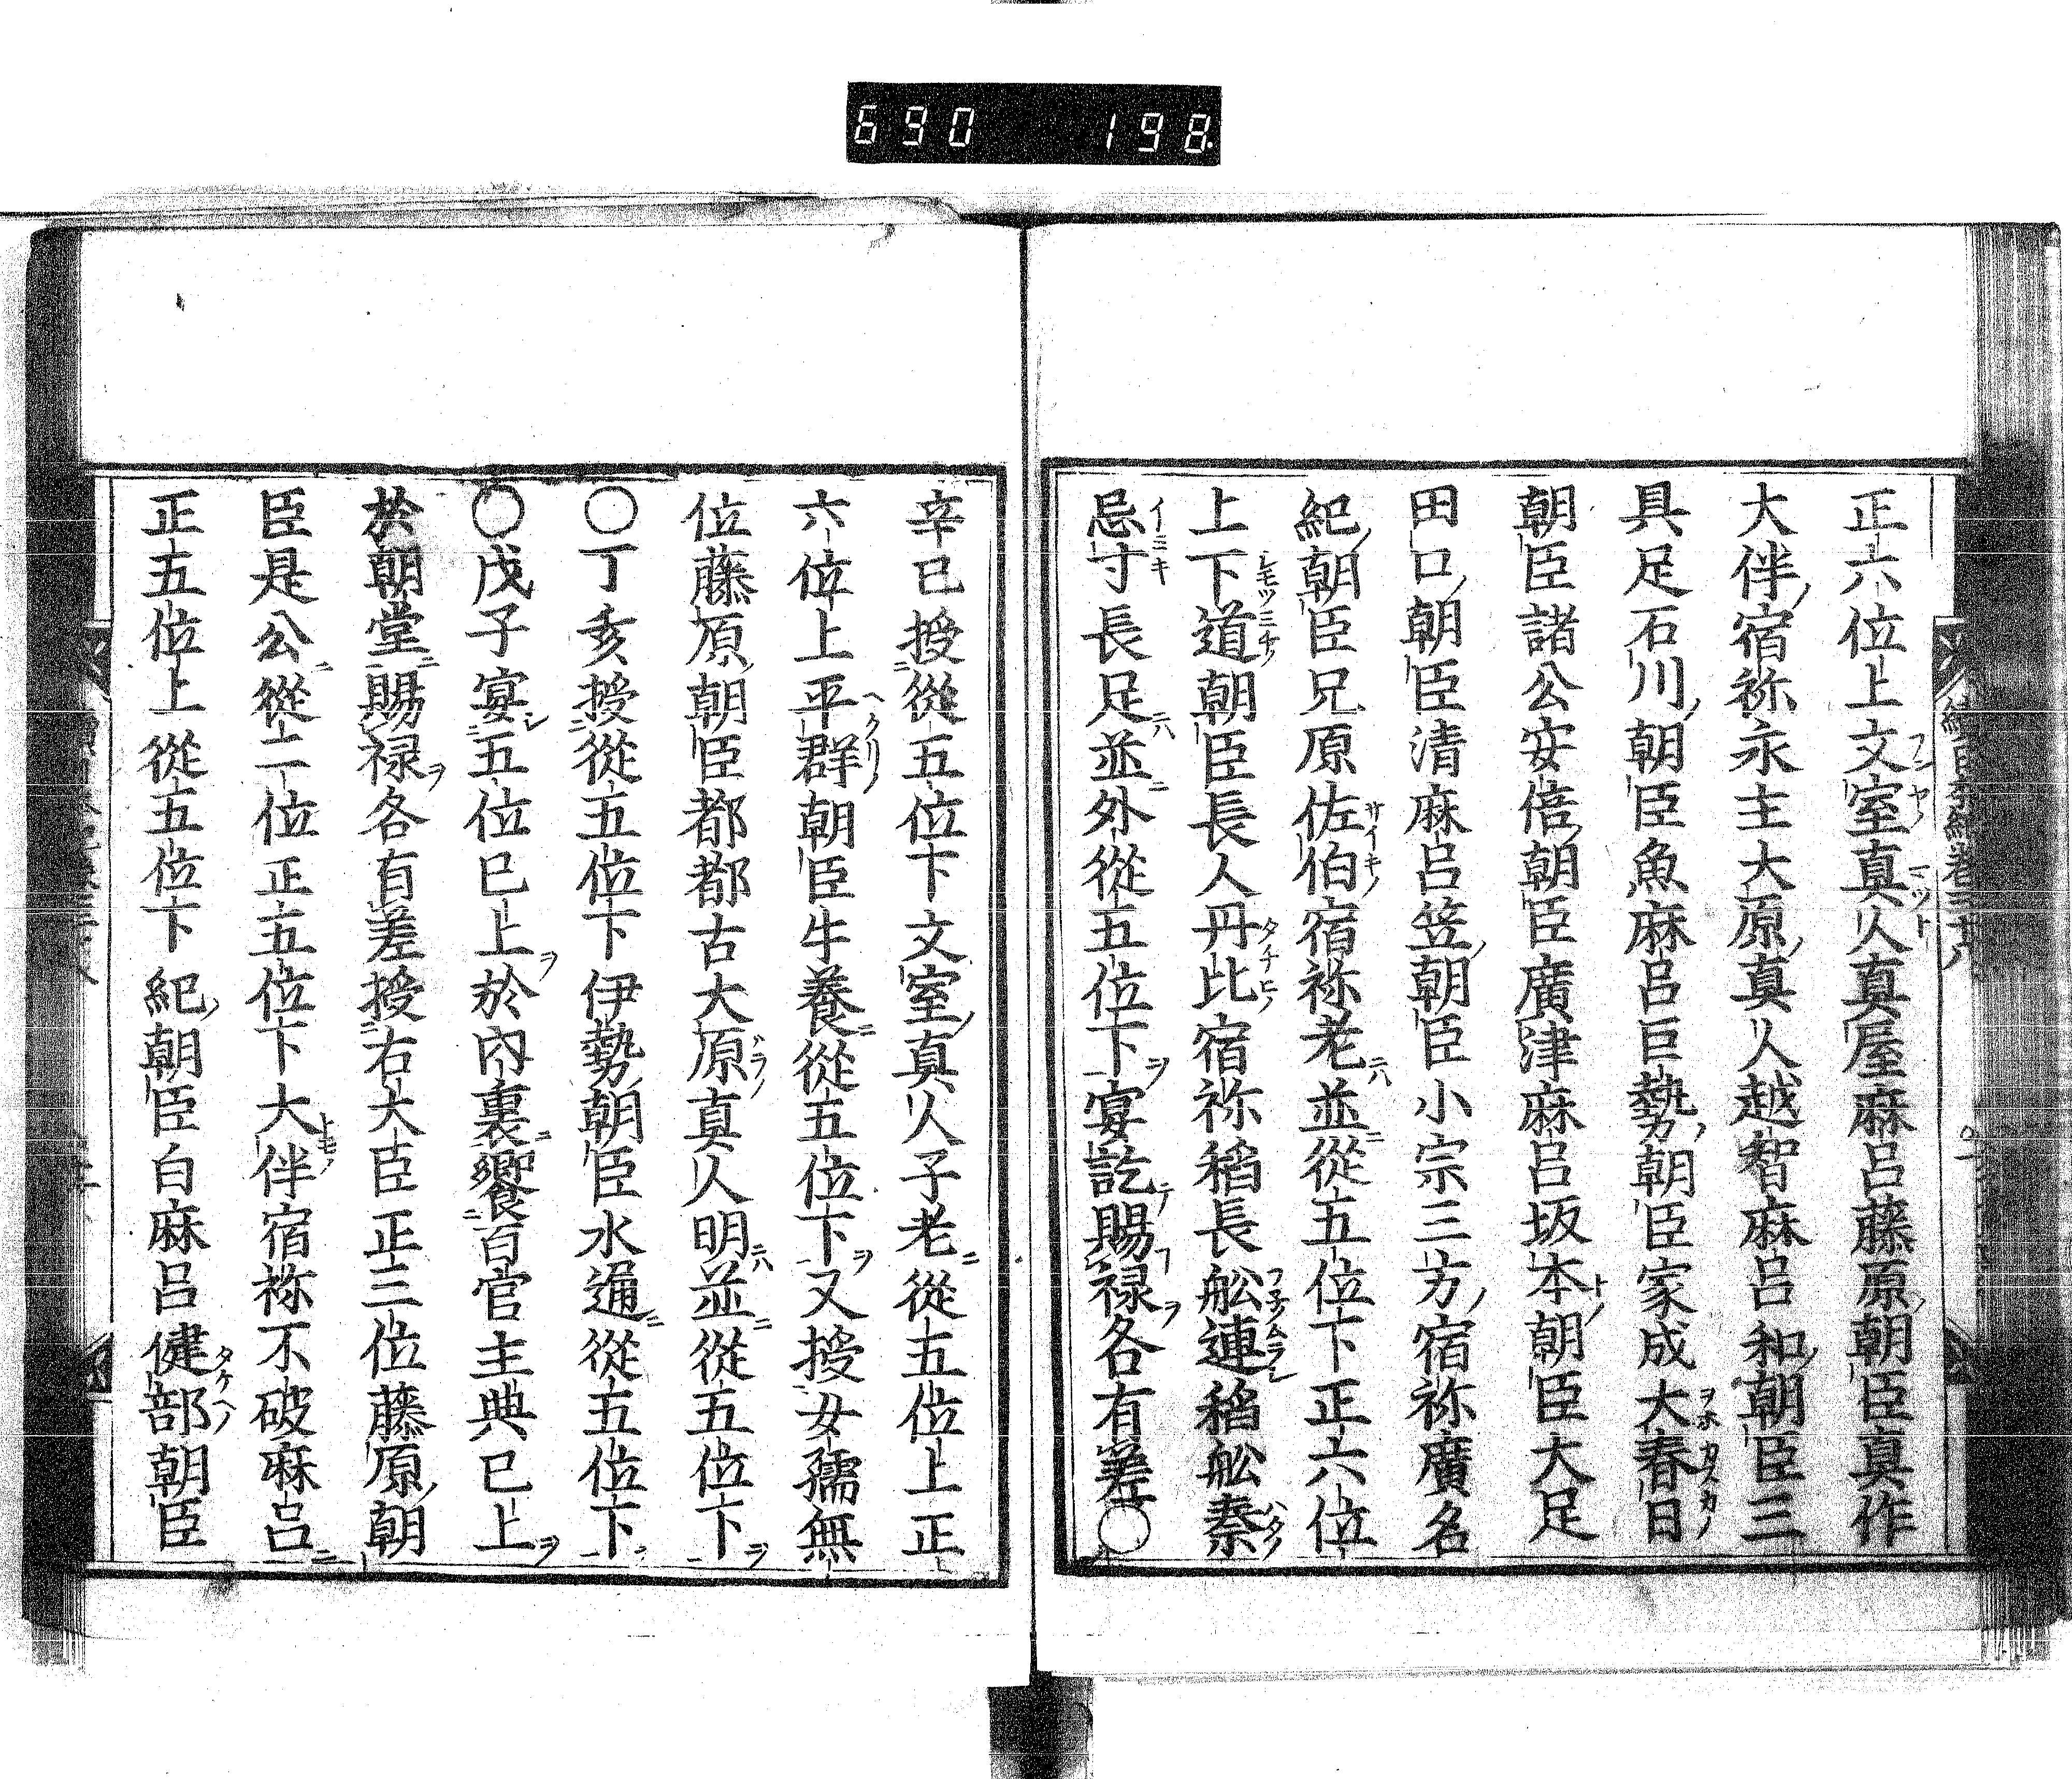 690 198
正六位上文室真人真屋麻呂藤原朝臣真作
大伴宿祢永主大原真人越智麻呂和朝臣三
具足石川朝臣魚麻呂巨勢朝臣家成大春日
朝臣諸公安倍朝臣廣津麻呂坂本朝臣大足
田口朝臣清麻呂笠朝臣小宗三方宿祢廣名
紀朝臣兄原佐伯宿祢老並從五位下正六位
上下道朝臣長人丹比宿祢稻長舩連稻舩秦
忌寸長足並外從五位下宴訖賜禄各有差〇
辛巳授從五位下文室真人子老從五位上正
六位上平群朝臣牛養從五位下又授女孺無
位藤原朝臣都都古大原真人明並從五位下
〇丁亥授從五位下伊勢朝臣水通從五位下
〇戊子宴五位已上於內裏饗百官主典已上
於朝堂賜禄各有差授右大臣正三位藤原朝
臣是公從二位正五位下大伴宿祢不破麻呂
正五位上從五位下紀朝臣白麻呂健部朝臣